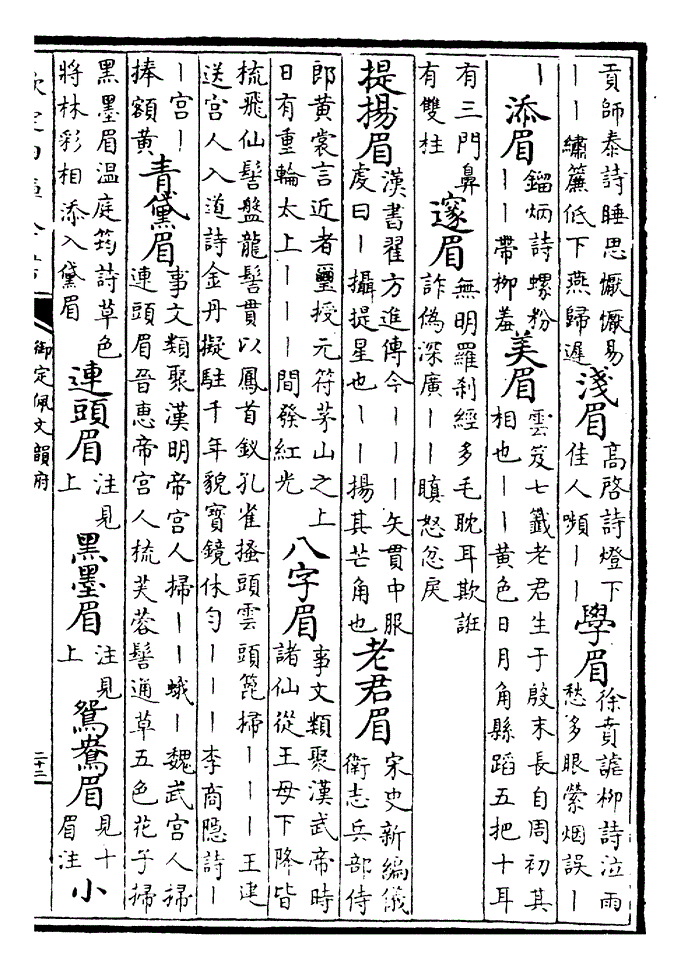 貢師泰詩睡思懨懨易｜｜繡簾低下燕歸遲 淺眉 高啓詩燈下佳人嚬｜｜ 學眉 徐賁謔柳詩泣雨愁多眼縈烟誤｜
｜ 添眉 鎦炳詩螺粉｜｜帶柳羞 美眉 雲笈七籤老君生于殷末長自周初其相也｜｜黃色日月角縣蹈五把十耳
有三門鼻有雙柱 邃眉 無明羅刹經多毛耽耳欺誑詐偽深廣｜｜瞋怒忿戾
提揚眉 漢書翟方進傳今｜｜｜矢貫中服虔曰｜攝提星也｜｜揚其芒角也 老君眉 宋史新編儀衛志兵部侍
郎黃裳言近者璽授元符茅山之上日有重輪太上｜｜｜間發紅光 八字眉 事文類聚漢武帝時諸仙從王母下降皆
梳飛仙髻盤龍髻貫以鳳首釵孔雀搔頭雲頭篦掃｜｜｜王建送宮人入道詩金丹擬駐千年貌寶鏡休勻｜｜｜李商隱詩｜
｜宮｜捧額黃 青黛眉 事文類聚漢明帝宮人掃｜｜蛾｜魏武宮人掃連頭眉晉惠帝宮人梳芙蓉髻通草五色花子掃
黑墨眉溫庭筠詩草色將林彩相添入黛眉 連頭眉 注見上 黑墨眉 注見上 鴛鴦眉 見十眉注 小
御定佩文韻府
二十二